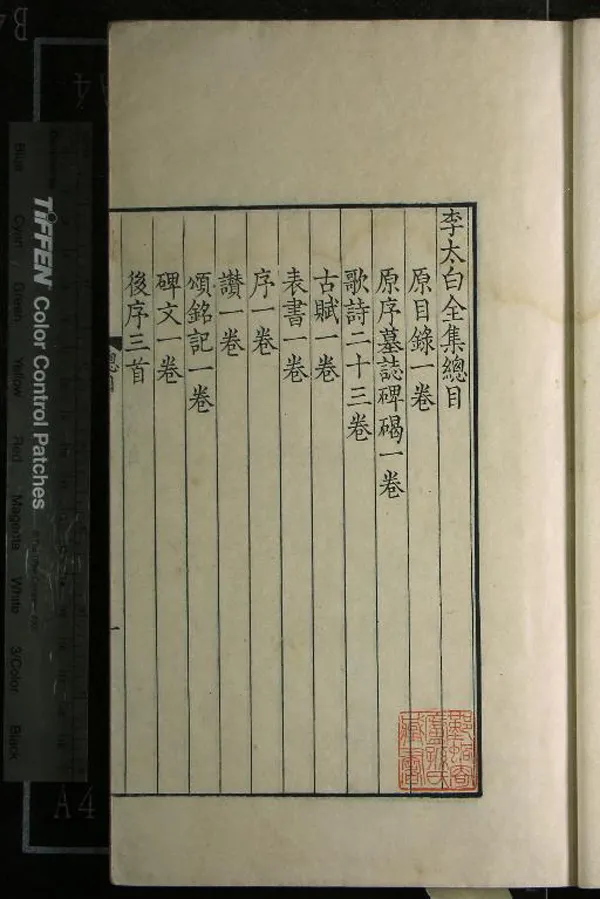 李太白全集總目
原目錄一卷
原序墓誌碑碣一卷
歌詩二十三卷
古賦一卷
表書一卷
序一卷
讚一卷
頌銘記一卷
碑文一卷
後序三首
總目
一
TIFFEN Color Control Patches
Blue
Cyan
Green
Yellow
Red
Magenta
White
3/Color
Black
A4